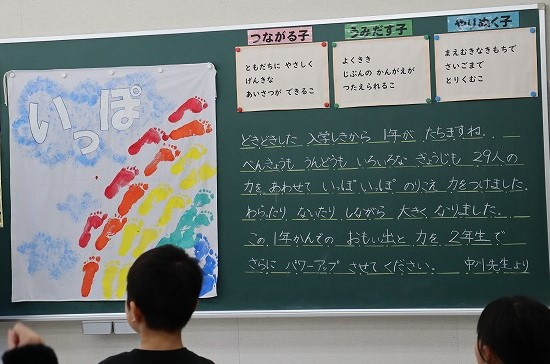 いっぽ
つながる子
ともだちに やさしく
げんきな
あいさつが できるこ
うみだす子
よくきき
じぶんの かんがえが
つたえられるこ
やりぬく子
まえむきなきもちで
さいごまで
とりくむこ
どきどきした 入学しきから 1年が たちますね。
べんきょうも うんどうも いろいろな ぎょうじも 29人の
力を あわせて いっぽ いっぽ のりこえ 力をつけました。
わらったり ないたり しながら 大きく なりました。
この 1年かんでの おもい出と 力を 2年生で
さらに パワーアップ させてください。 中川先生より